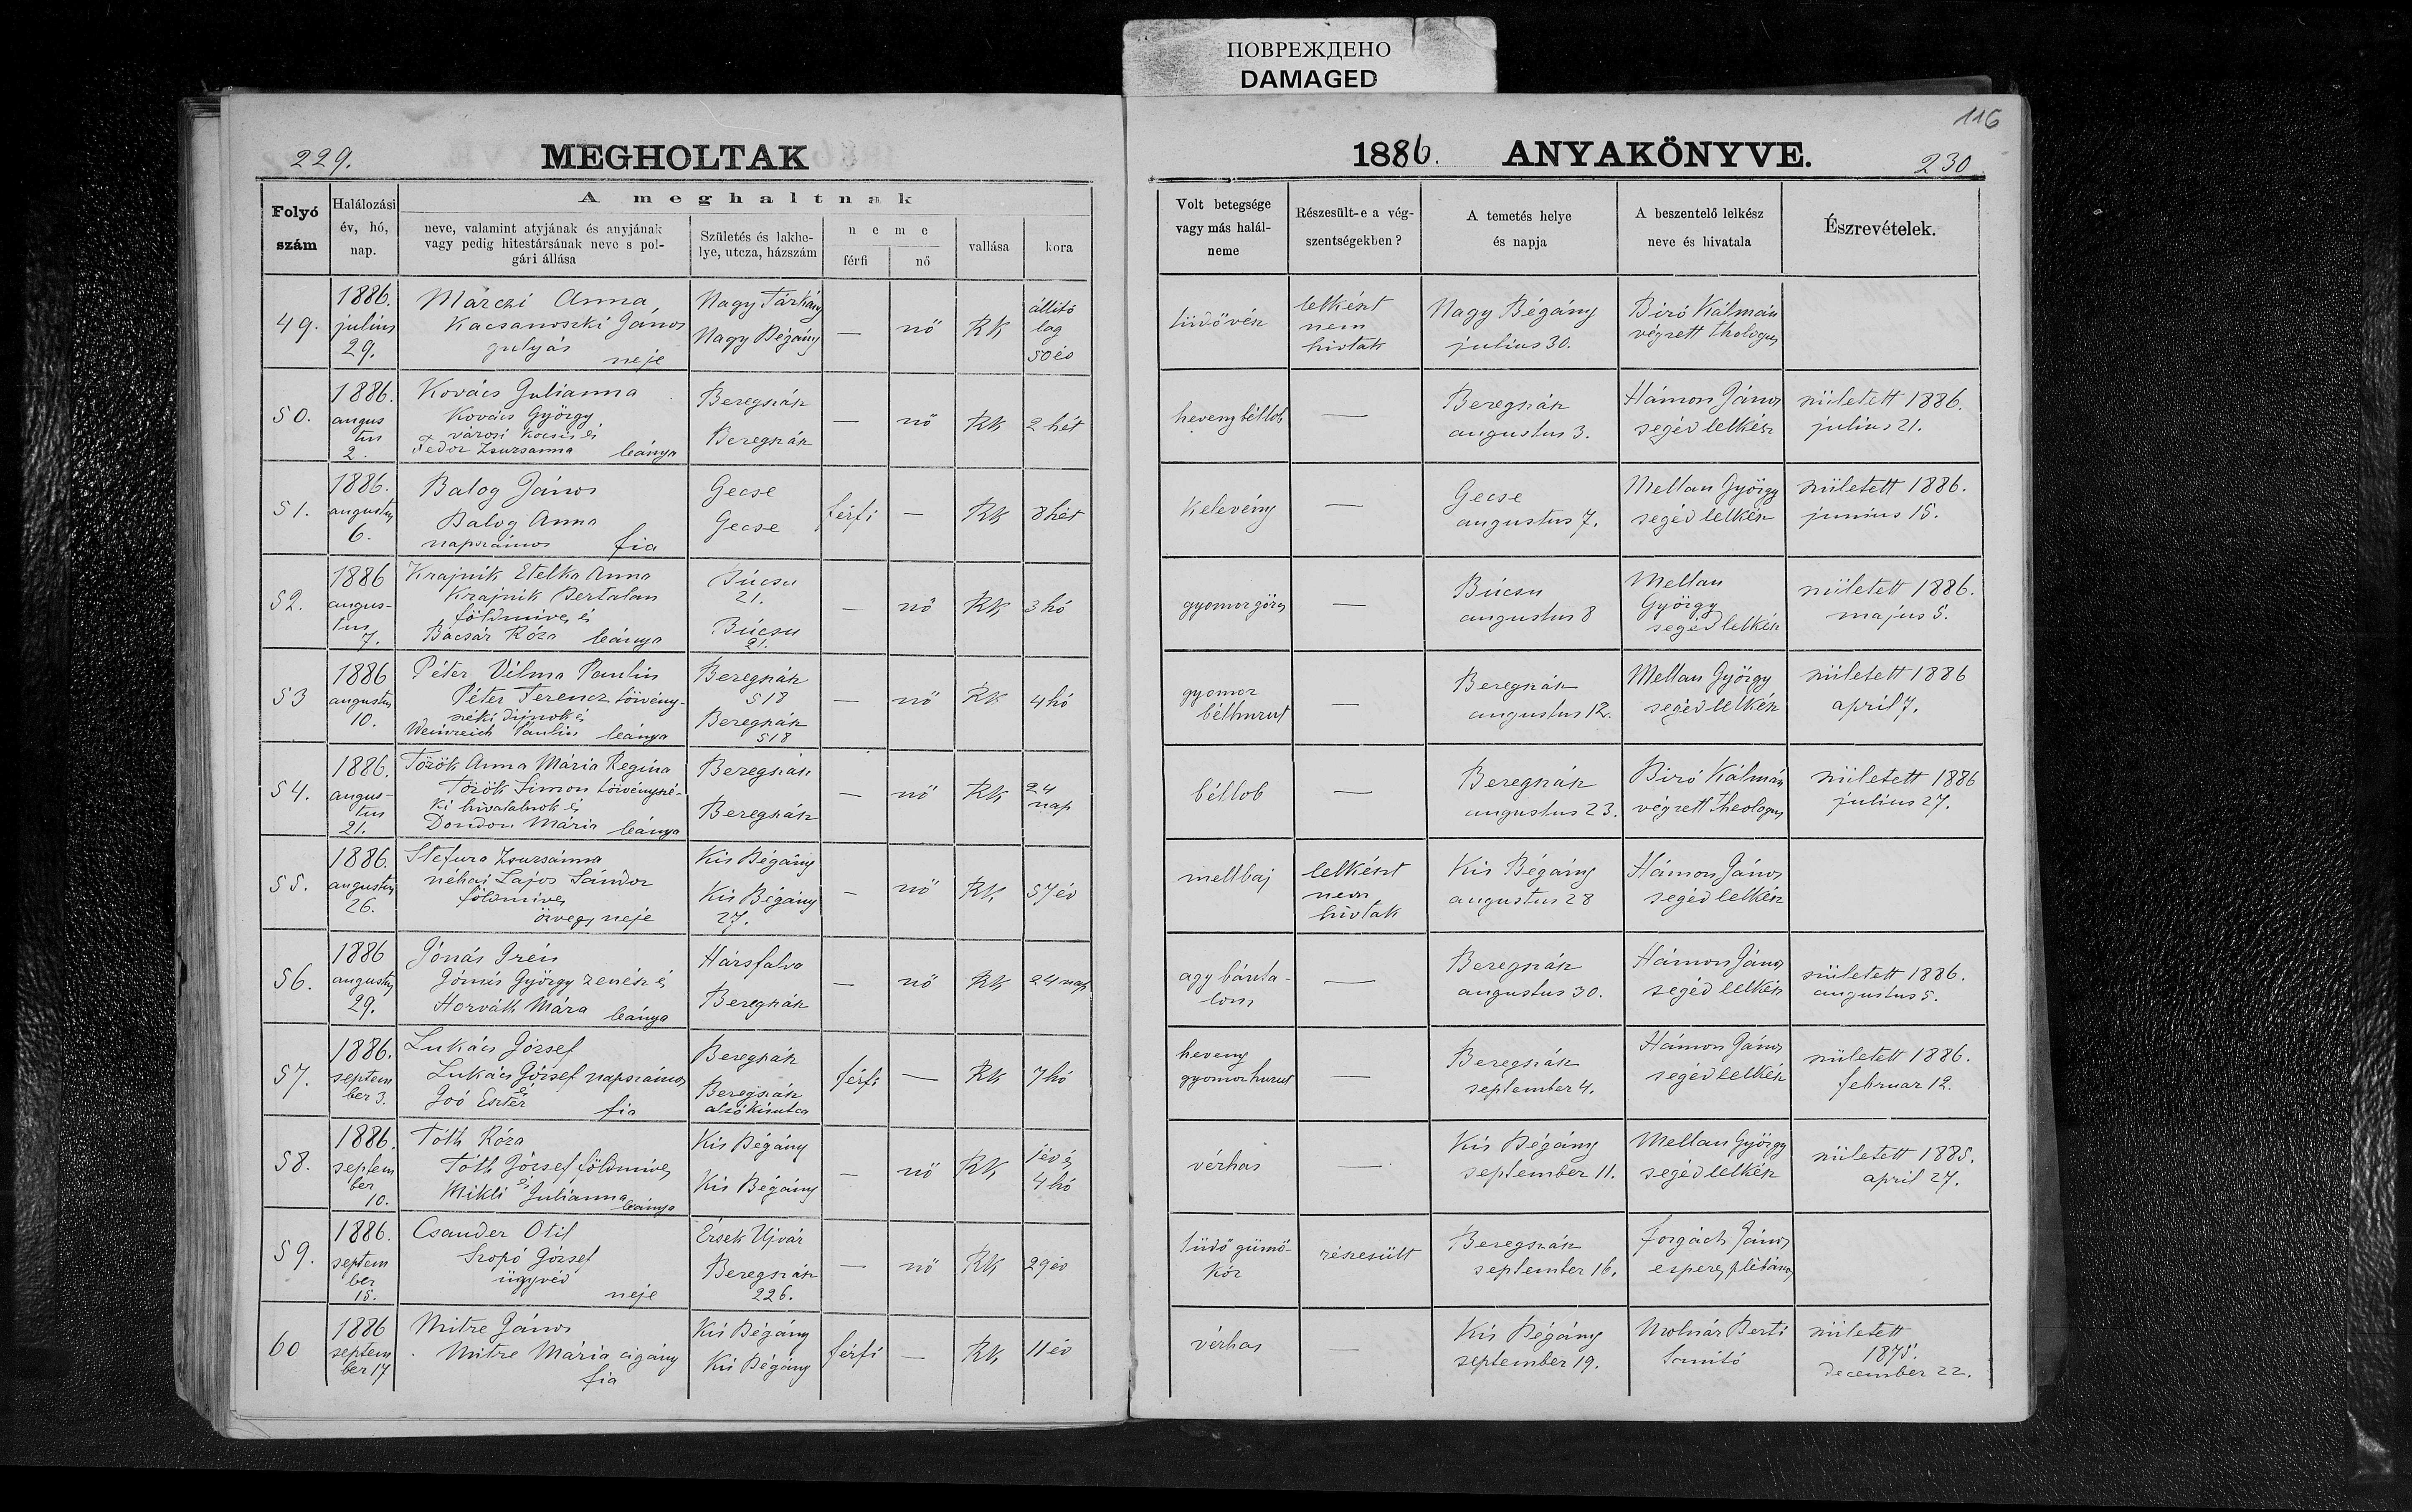 ПОВРЕЖДЕНО
DAMAGED
116
229.
MEGHOLTAK
1886. ANYAKÖNYVE.
230
Folyó szám
Halálozási év, hó, nap.
A meghaltnak
neve, valamint atyjának és anyjának
vagy pedig hitestársának neve s pol-
gári állása
Születés és lakhe-
lye, utcza, házszám
neme
férfi
nő
vallása
kora
Volt betegsége
vagy más halál-
neme
Részesült-e a vég-
szentségekben?
A temetés helye
és napja
A beszentelő lelkész
neve és hivatala
Észrevételek.
49.
1886.
julius
29.
Márczi Anna
Kacsanoszki János
gulyás
neje
Nagy Tárkány
Nagy Bégány
—
nő
RK
állító
lag
50 év
tüdővész
lelkészt
nem
hivtak
Nagy Bégány
julius 30.
Biró Kálmán
végzett theologus
50.
1886.
augus
tus
2.
Kovács Julianna
Kovács György
városi kocsis és
Fedor Zsuzsanna leánya
Beregszász
Beregszász
—
nő
RK
2 hét
heveny béllob
—
Beregszász
augustus 3.
Hámon János
segédlelkész
született 1886.
julius 21.
51.
1886.
augustus
6.
Balog János
Balog Anna
napszámos fia
Gecse
Gecse
férfi
—
RK
8 hét
kelevény
—
Gecse
augustus 7.
Mellau György
segédlelkész
született 1886.
junius 15.
52.
1886
augus-
tus
7.
Krajnik Etelka Anna
Krajnik Bertalan
földmives és
Bacsár Róza leánya
Búcsu
21.
Búcsu
21.
—
nő
RK
3 hó
gyomorgörcs
—
Búcsu
augustus 8
Mellau
György
segédlelkész
született 1886.
majus 5.
53
1886
augustus
10.
Péter Vilma Paulin
Péter Ferencz törvény-
széki dijnok és
Weinreich Paulin leánya
Beregszász
518
Beregszász
518
—
nő
RK
4 hó
gyomor
bélhurut
—
Beregszász
augustus 12.
Mellau György
segédlelkész
született 1886
april 7.
54.
1886.
augus-
tus
21.
Török Anna Mária Regina
Török Simon törvényszé-
ki hivatalnok és
Dondon Mária leánya
Beregszász
Beregszász
—
nő
RK
24
nap
béllob
—
Beregszász
augustus 23.
Biró Kálmán
végzett theologus
született 1886
julius 27.
55.
1886.
augustus
26.
Stefura Zsuzsánna
néhai Lajos Sándor
földmives
özvegy neje
Kis Bégány
Kis Bégány
27.
—
nő
RK
57 év
mellbaj
lelkészt
nem
hivtak
Kis Bégány
augustus 28
Hámon János
segédlelkész
56.
1886
augustus
29.
Jónás Irén
Jónás György zenész és
Horváth Mára leánya
Hársfalva
Beregszász
—
nő
RK
24 nap
agy bánta-
lom
—
Beregszász
augustus 30.
Hámon János
segédlelkész
született 1886.
augustus 5.
57.
1886.
septem
ber 3.
Lukács József
Lukács József napszámos
és
Joó Eszter fia
Beregszász
Beregszász
alsó kisutca
férfi
—
RK
7 hó
heveny
gyomorhurut
—
Beregszász
september 4.
Hámon János
segédlelkész
született 1886.
február 12.
58.
1886.
septem
ber
10.
Tóth Róza
Tóth József földmives
és
Mikli Julianna leánya
Kis Bégány
Kis Bégány
—
nő
RK
1 év és
4 hó
vérhas
—
Kis Bégány
september 11.
Mellau György
segédlelkész
született 1885.
april 27.
59.
1886.
septem
ber
15.
Csander Otil
Szopó József
ügyvéd
neje
Érsek Ujvár
Beregszász
226.
—
nő
RK
29 év
tüdő gümő-
kór
részesült
Beregszász
september 16.
Forgách János
esperes plébános
60
1886
septem
ber 17
Mitre János
Mitre Mária cigány
fia
Kis Bégány
Kis Bégány
férfi
—
RK
11 év
vérhas
—
Kis Bégány
september 19.
Molnár Berti
tanító
született
1875.
december 22.